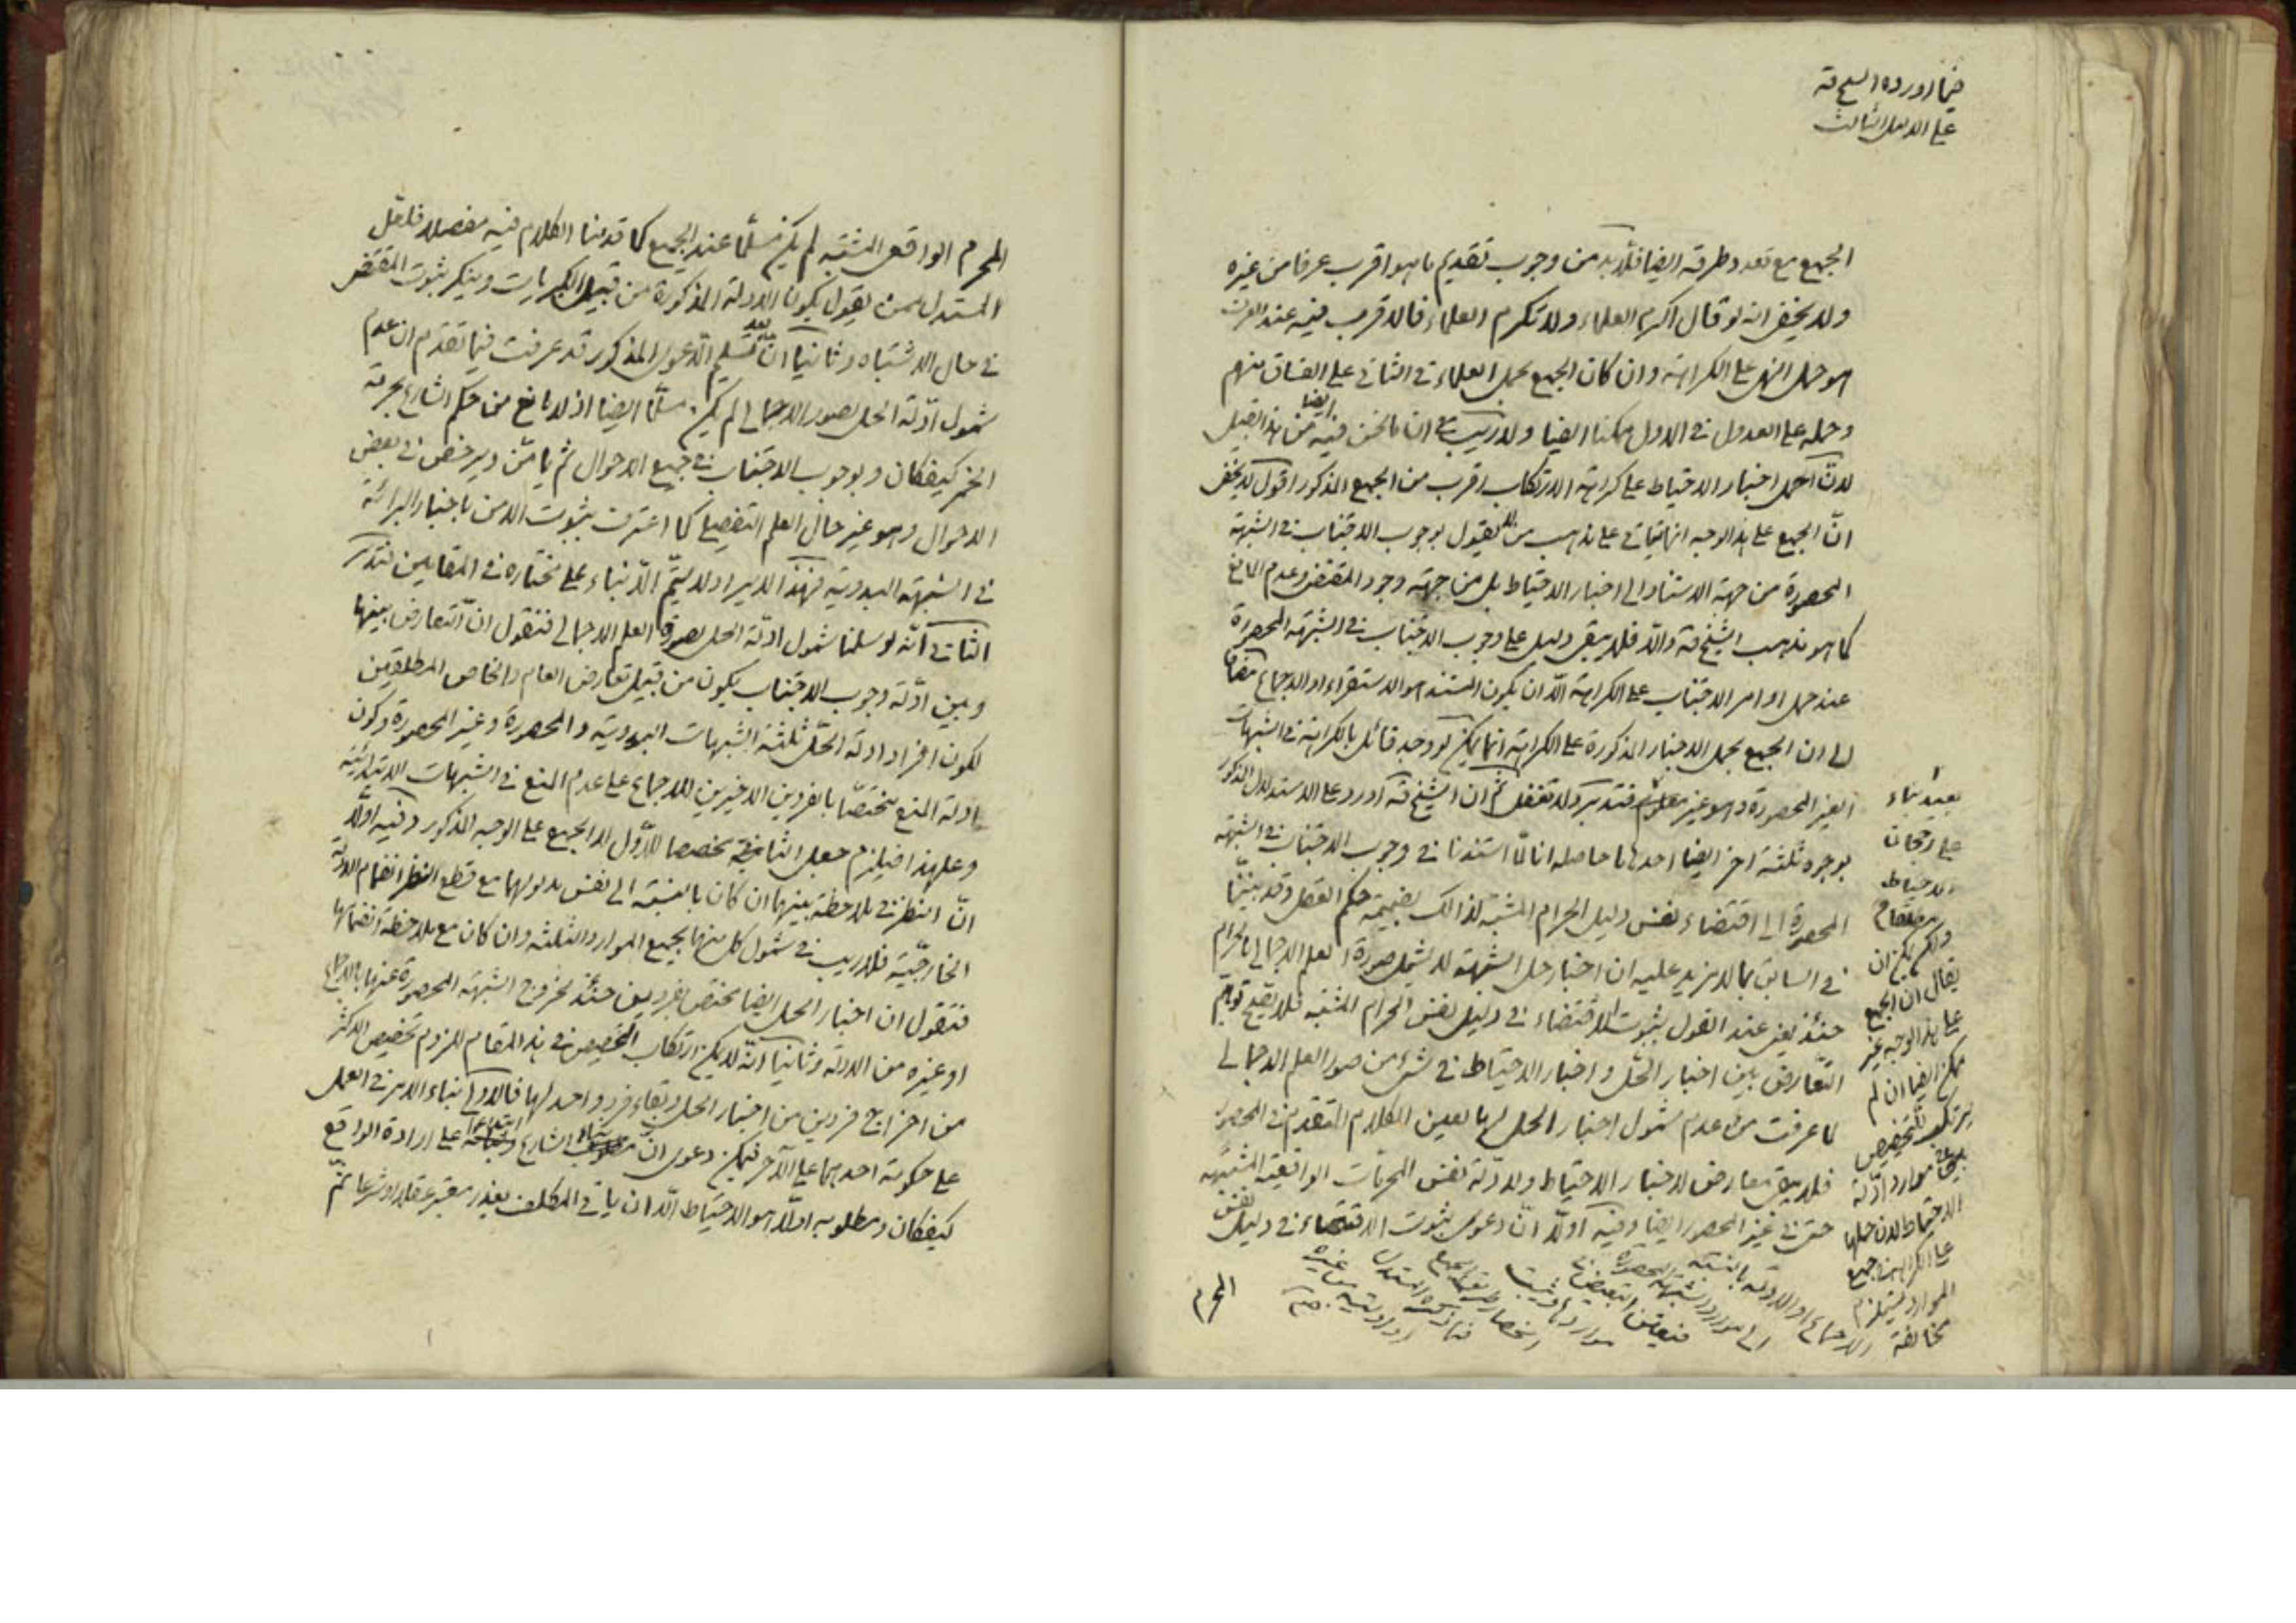 فيما اورده الشيخ قه
على الدليل الثالث
الجمع مع تعدد طرقه ايضا فلا بد من وجوب تقديم ما هو اقرب عرفا من غيره
ولا يخفى انه لو قال اكرم العلماء ولا تكرم العلماء فالاقرب فيه عند العرف
هو حمل النهى على الكراهة وان كان الجمع بحمل العلماء فى الثانى على الفساق منهم
وحمله على العدول فى الاول ممكنا ايضا ولا ريب فى ان ما نحن فيه ايضا من هذا القبيل
لان حمل اخبار الاحتياط على كراهة الارتكاب اقرب من الجمع المذكور اقول لا يخفى
ان الجمع على هذا الوجه انما يتاتى على مذهب من يقول بوجوب الاجتناب فى الشبهة
المحصورة من جهة الاستناد الى اخبار الاحتياط بل من جهة وجود المقتضى وعدم المانع
كما هو مذهب الشيخ قه والا فلا يبقى دليل على وجوب الاجتناب فى الشبهة المحصورة
عند حمل اوامر الاجتناب على الكراهة الا ان يكون المستند هو الاستقراء او الاجماع مضافا
الى ان الجمع بحمل الاخبار المذكورة على الكراهة انما يمكن لو وجد قائل بالكراهة فى الشبهات
الغير المحصورة وهو غير معلوم فتدبر ولا تغفل ثم ان الشيخ قه اورد على الاستدلال المذكور
بوجوه ثلثة اخر ايضا احدها ما حاصله انا لما استندنا فى وجوب الاجتناب فى الشبهة
المحصورة الى اقتضاء نفس دليل الحرام المشتبه لذلك بضميمة حكم العقل وقد بينا
فى السابق بما لا مزيد عليه ان اخبار حل الشبهة لا يشمل صورة العلم الاجمالى بالحرام
حينئذ يعنى عند القول بثبوت الاقتضاء فى دليل نفس الحرام المشتبه فلا يقدح توهم
التعارض بين اخبار الحل و اخبار الاحتياط فى شىء من صور العلم الاجمالى
لما عرفت من عدم شمول اخبار الحل لها بعين الكلام المتقدم فى المحصور
فلا يبقى معارض لاخبار الاحتياط ولا دلة نفس المحرمات الواقعية المشتبهه
حتى فى غير المحصور ايضا وفيه اولا ان دعوى ثبوت الاقتضاء فى دليل نفس
المحرم
بعيد بناء
على رجحان
الاحتياط
ولكن يمكن ان
يقال ان الجمع
على هذا الوجه غير
ممكن ايضا ان لم
يرتكب التخصيص
موارد ادلة
الاحتياط لان حملها
على الكراهة فى جميع
الموارد يستلزم
مخالفة الاجماع او الادلة بالنسبة
الى موارد الشبهة المحصورة
المحرم الواقعى المشتبه لم يكن مسلما عند الجميع كما قدمنا الكلام فيه مفصلا فلعل
المستدل ممن يقول بكون الادلة المذكورة من قبيل الكبريات وينكر ثبوت المقتضى
فى حال الاشتباه وثانيا ان بعد تسليم الدعوى المذكور قد عرفت فيما تقدم ان عدم
شمول ادلة الحل بصور الاجمالى لم يكن مسلما ايضا اذ لا مانع من حكم الشارع بحرمة
الخمر كيف كان و بوجوب الاجتناب فى جميع الاحوال ثم يامن ويرخص فى بعض
الاحوال وهو غير حال العلم التفصيلى كما اعترفت بثبوت الامن باخبار البرائة
فى الشبهة البدوية فهذا الايراد لا يتم الا بناء على مختاره فى المقامين فتدبر
الثانى انه لو سلمنا شمول ادلة الحل بصورة العلم الاجمالى فنقول ان التعارض بينها
وبين ادلة وجوب الاجتناب يكون من قبيل تعارض العام والخاص المطلقين
لكون افراد ادلة الحل ثلثة الشبهات البدوية و المحصورة وغير المحصورة وكون
ادلة المنع مختصا بالفردين الاخيرين للاجماع على عدم المنع فى الشبهات الابتدائية
وعلى هذا فيلزم جعل الثانى مخصصا للاول لا الجمع على الوجه المذكور وفيه اولا
ان النظر فى ملاحظة بينهما ان كان بالنسبة الى نفس مدلولهما مع قطع النظر انضمام الادلة
الخارجية فلا ريب فى شمول كل منهما لجميع الموارد الثلثه وان كان مع ملاحظة انضمامها
فنقول ان اخبار الحل ايضا مختص بفردين حينئذ لخروج الشبهة المحصورة عنها بالاجماع
او غيره من الادلة وثانيا انه لا يمكن ارتكاب التخصيص فى هذا المقام للزوم تخصيص الاكثر
من اخراج فردين من اخبار الحل وبقاء فرد واحد لها فالاولى بناء الامر فى العمل
على حكومة احدهما على الآخر فيمكن دعوى ان بناء الشارع على ارادة الواقع
كيف كان ومطلوبه اولا هو الاحتياط الا ان ياتى المكلف بعذر معتبر عقلا او شرعا ثم